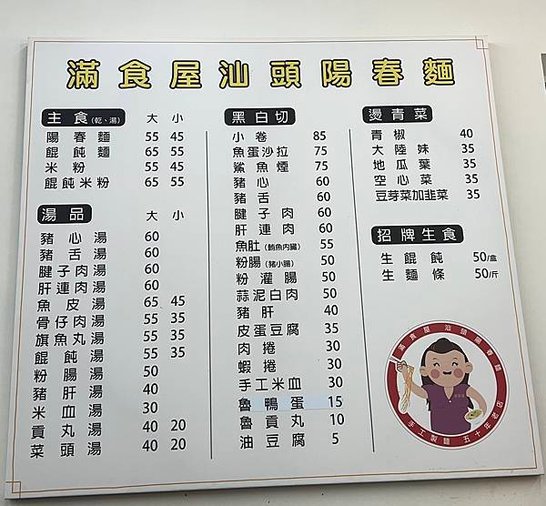 滿食屋汕頭陽春麵
主食(乾、湯) 大 小
陽春麵 55 45
餛飩麵 65 55
米粉 55 45
餛飩米粉 65 55
湯品 大 小
豬心湯 60
豬舌湯 60
腱子肉湯 60
肝連肉湯 60
魚皮湯 65 45
骨仔肉湯 55 35
旗魚丸湯 55 35
餛飩湯 55 35
粉腸湯 50
豬肝湯 40
米血湯 30
貢丸湯 40 20
菜頭湯 40 20
黑白切
小卷 85
魚蛋沙拉 75
鯊魚煙 75
豬心 60
豬舌 60
腱子肉 60
肝連肉 60
魚肚(鮪魚內臟) 55
粉腸(豬小腸) 50
粉灌腸 50
蒜泥白肉 50
豬肝 40
皮蛋豆腐 35
肉捲 30
蝦捲 30
手工米血 30
魯鴨蛋 15
魯貢丸 10
油豆腐 5
燙青菜
青椒 40
大陸妹 35
地瓜葉 35
空心菜 35
豆芽菜加韭菜 35
招牌生食
生餛飩 50/盒
生麵條 50/斤
滿食屋 汕頭陽春麵
手工製麵 五十年老店